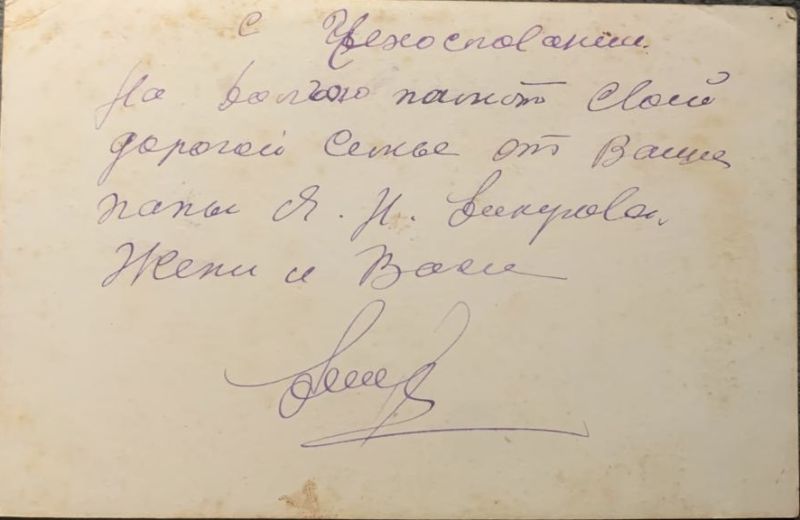 с Чехословакии.
На долгую память своей
дорогой семье от Ваше
папы Я. Н.
Жени и Васи